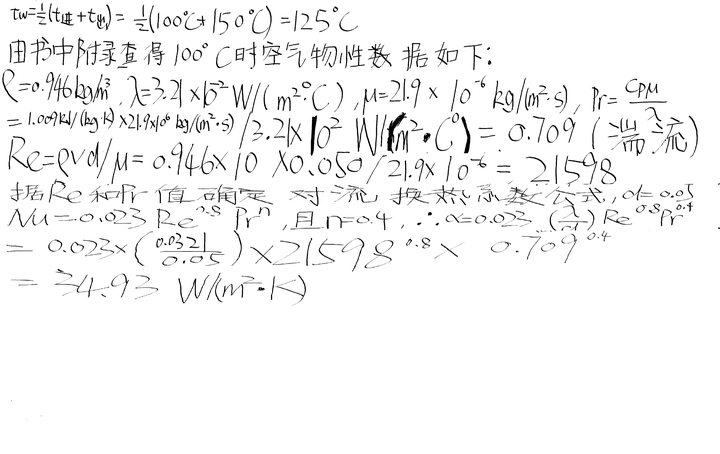 tw=½(t进+t出)=½(100°C+150°C)=125°C
由书中附录查得100°C时空气物性数据如下:
ρ=0.946kg/m³,λ=3.21×10⁻²W/(m²·°C),μ=21.9×10⁻⁶kg/(m²·s),Pr=CPμ/λ
=1.009kJ/(kg·K)×21.9×10⁶kg/(m²·s)/3.21×10²W/(m²·C°)=0.709(湍流)
Re=ρvd/μ=0.946×10×0.050/21.9×10⁻⁶=21598
据Re和Pr值确定对流换热系数公式,d=0.05
Nu=0.023Re^0.8 Pr^n,且n=0.4,∴α=0.023(λ/d)Re^0.8Pr^0.4
=0.023×(0.0321/0.05)×21598^0.8×0.709^0.4
=34.93 W/(m²·K)